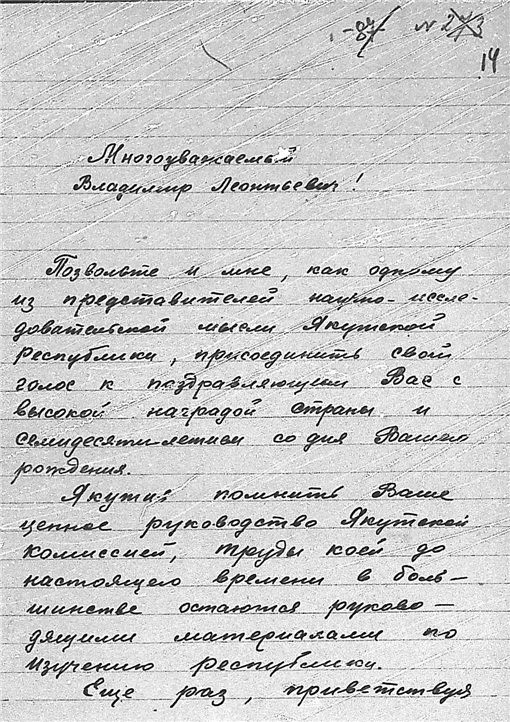 -87- N 273
14
Многоуважаемый
Владимир Леонтьевич!
Позвольте и мне, как одному
из представителей научно-иссле-
довательской мысли Якутской
республики, присоединить свой
голос к поздравляющим Вас с
высокой наградой страны и
семидесяти-летием со дня Вашего
рождения.
Якутия помнить Ваше
ценное руководство Якутской
комиссией, труды коей до
настоящего времени в боль-
шинстве остаются руково-
дящими материалами по
изучению республики.
Еще раз, приветствуя